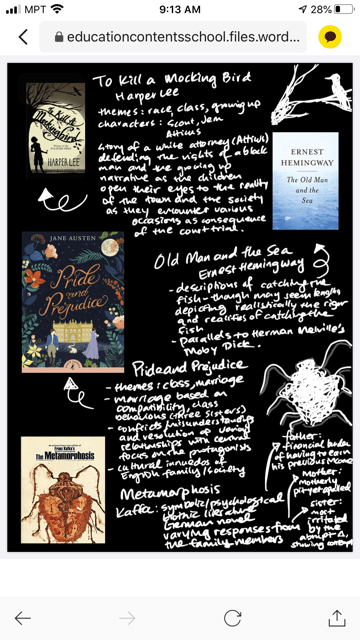 MPT
9:13 AM
28%
educationcontentsschool.files.word...
To Kill a Mocking Bird
Harper Lee
themes: race, class, growing up
characters: Scout, Jem
Atticus
story of a white attorney (Atticus)
defending the rights of a black
man and the growing up
narrative as the children
open their eyes to the reality
of the town and the society
as they encounter various
occasions as consequence
of the court trial.
To Kill a
Mockingbird
HARPER LEE
ERNEST
HEMINGWAY
The Old Man
and the
Sea
JANE AUSTEN
Pride
and
Prejudice
Old Man and the Sea
Ernest Hemingway
- descriptions of catching the
fish - though may seem lengthy
depicting realistically the rigor
and realities of catching the
fish
- parallels to Herman Melville's
Moby Dick.
Pride and Prejudice
- themes: class, marriage
- marriage based on
compatibility, class
(three sisters)
- conflicts/misunderstandings
and resolution of
relationships with central
focus on the protagonists
- cultural
English family/society
Franz Kafka's
The Metamorphosis
Metamorphosis
Kafka: symbolic/psychological
gothic literature
German novel
varying responses from
the family members
father:
financial burden
of having to earn
his previous income
Mother:
motherly
pity
sister:
most
irritated
by the
abrupt Δ,
showing